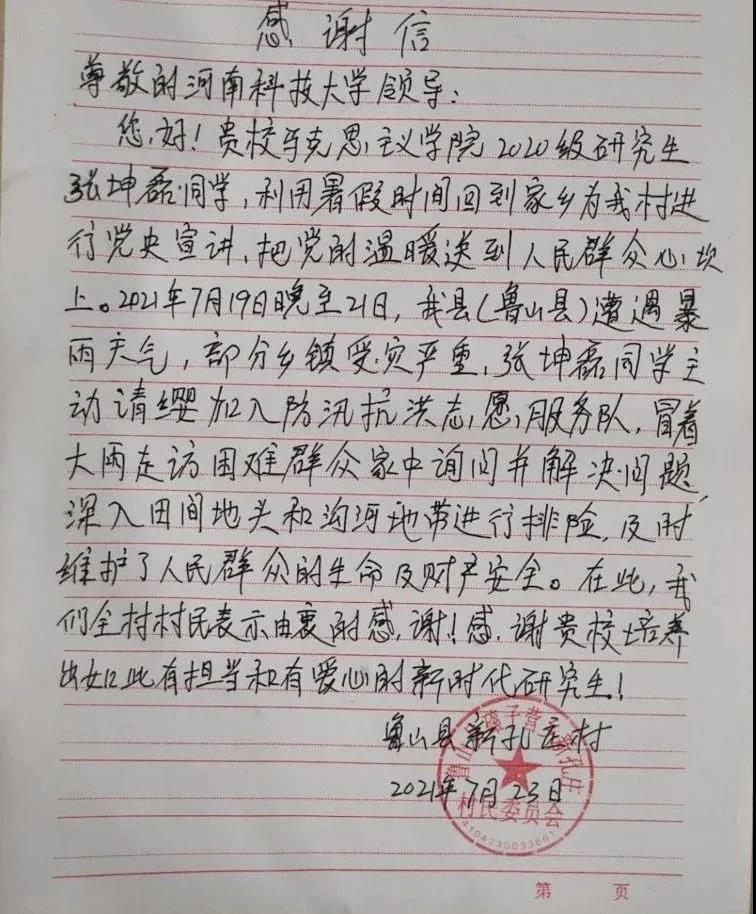 感谢信
尊敬的河南科技大学领导：
您好！贵校马克思主义学院2020级研究生
张坤磊同学，利用暑假时间回到家乡为我村进
行党史宣讲，把党的温暖送到人民群众心坎
上。2021年7月19日晚至21日，我县（鲁山县）遭遇暴
雨天气，部分乡镇受灾严重，张坤磊同学主
动请缨加入防汛抗洪志愿服务队，冒着
大雨走访困难群众家中询问并解决问题，
深入田间地头和沟河地带进行排险，及时
维护了人民群众的生命及财产安全。在此，我
们全村村民表示由衷的感谢！感谢贵校培养
出如此有担当和有爱心的新时代研究生！
鲁山县新孔庄村
2021年7月23日
村民委员会
第 页